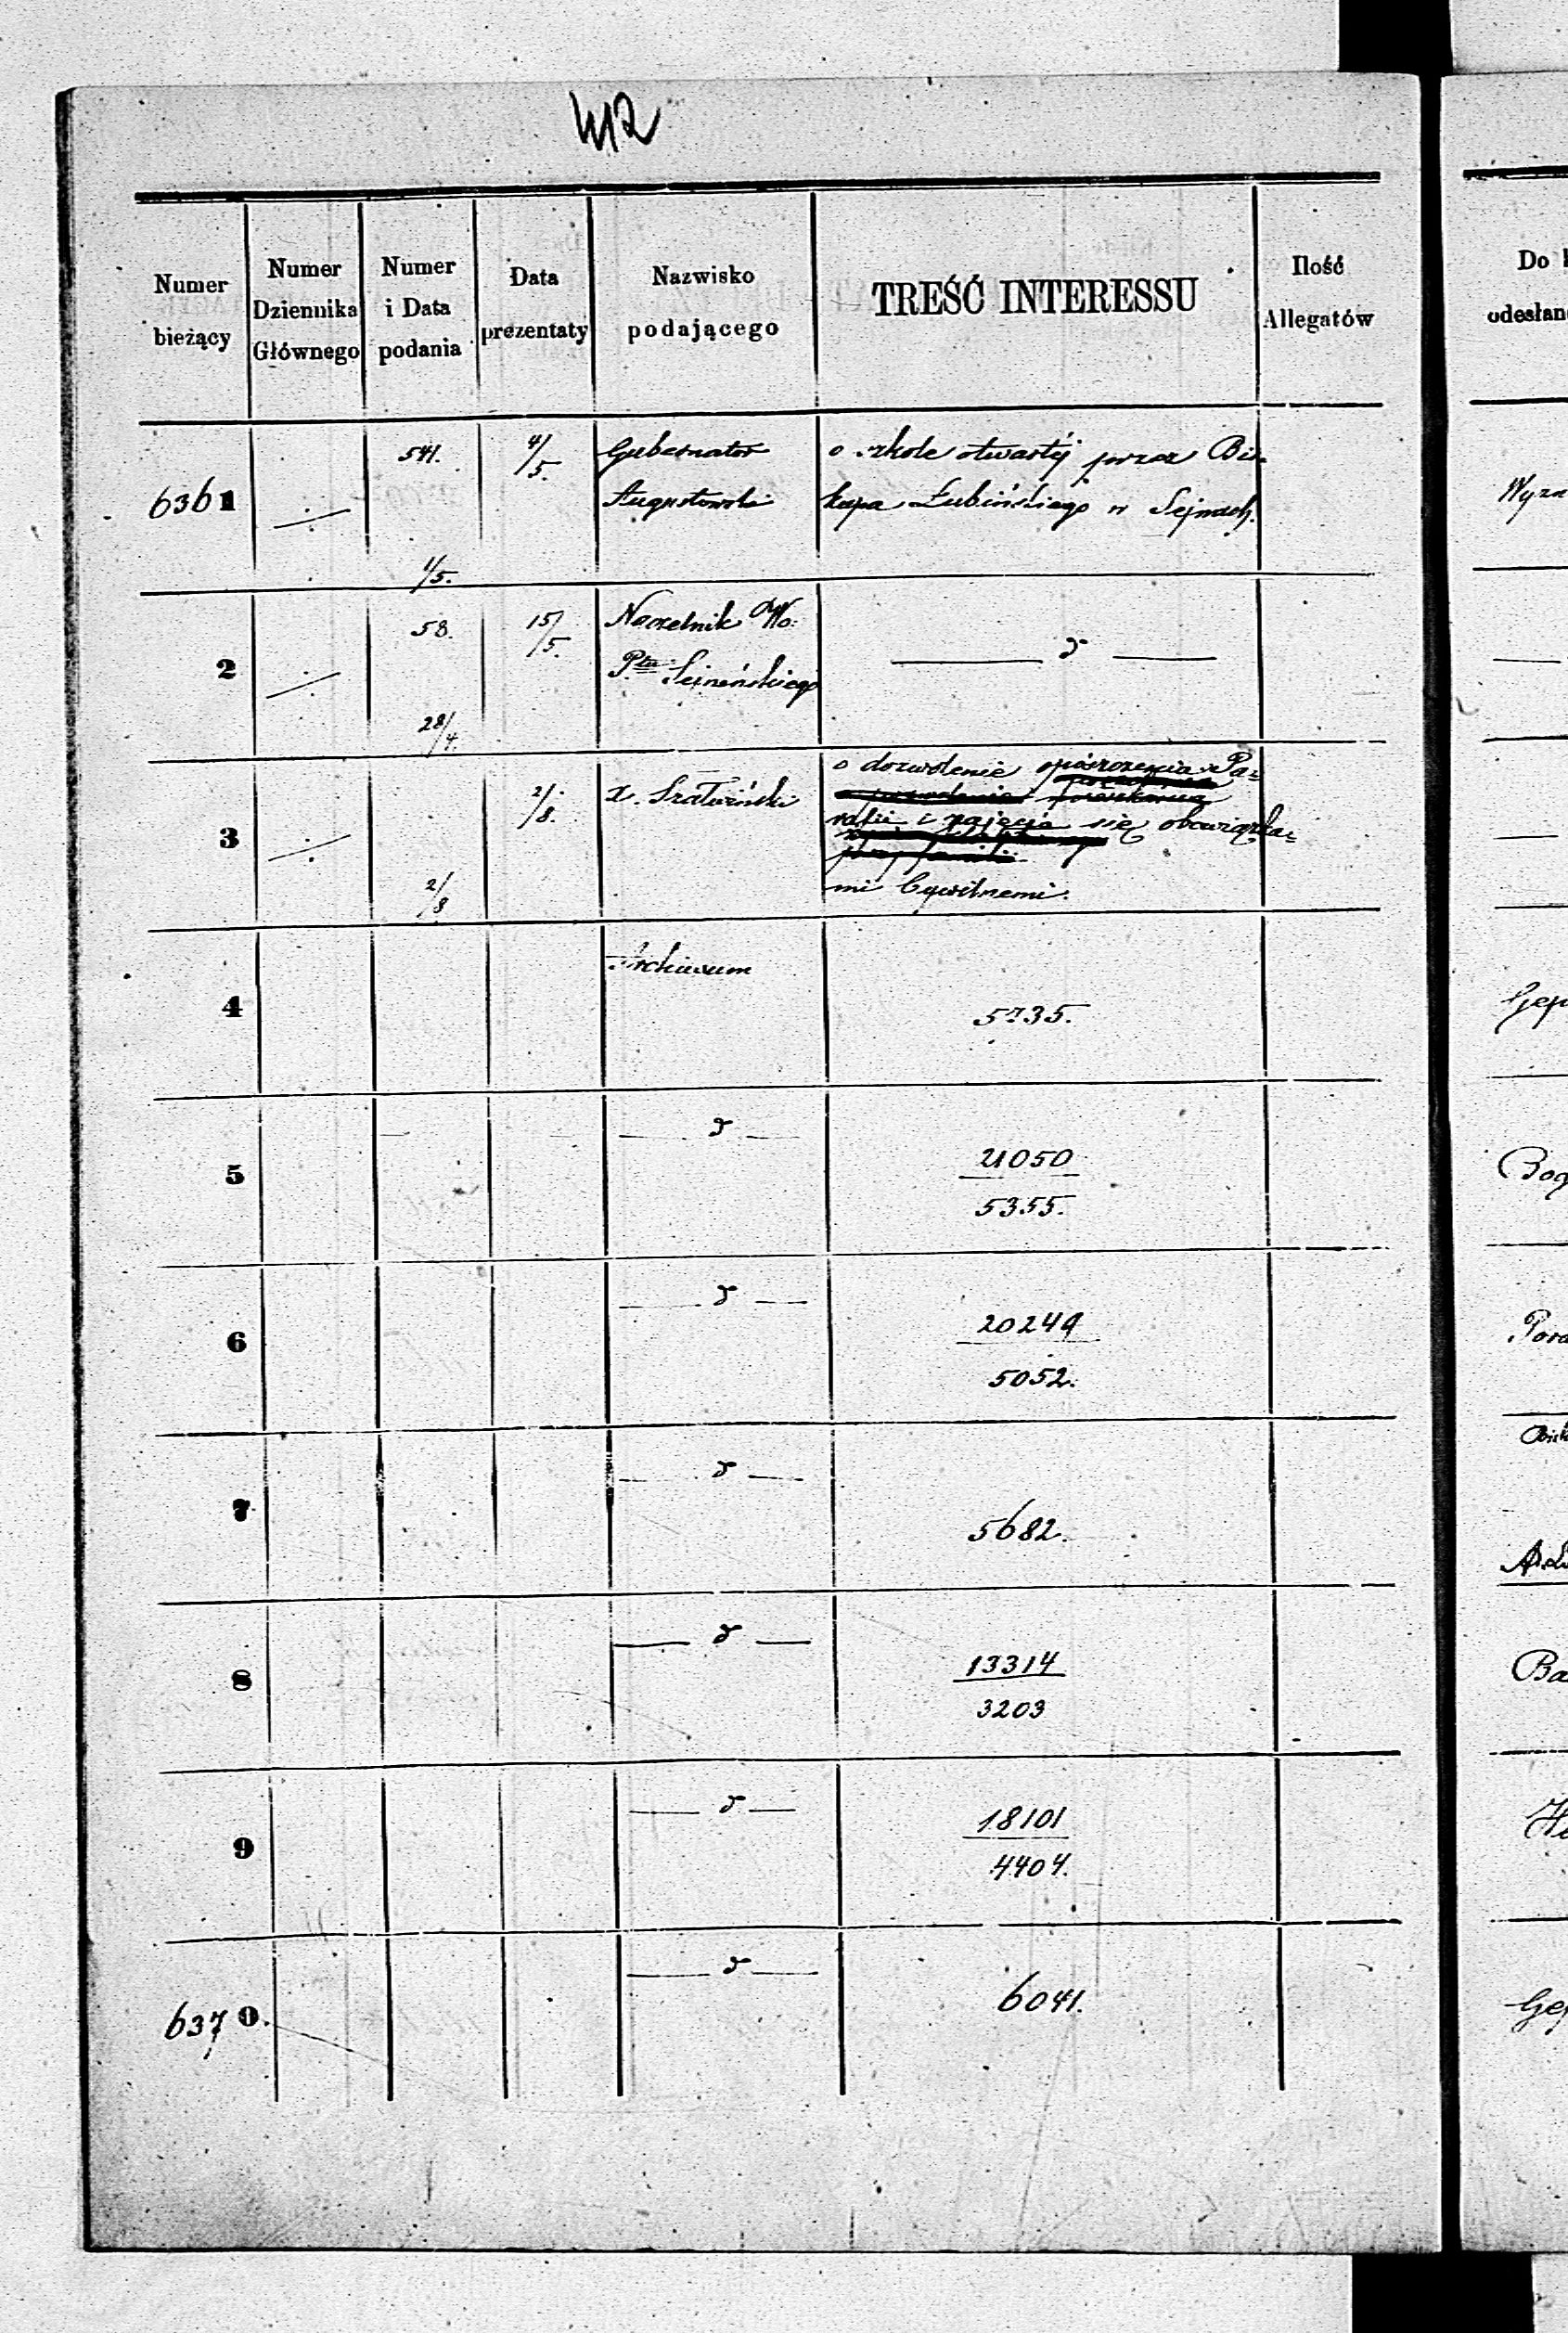 412
Numer bieżący
Numer Dziennika Głównego
Numer i Data podania
Data prezentaty
Nazwisko podającego
TREŚĆ INTERESSU
Ilość Allegatów
Do
odesłan
6361 ÷ 541. 4/5. Gubernator o szkole otwartéj przez Bis
Augustowski kupa Łubińskiego w Sejnach.
1/5.
Wyzn
2 ÷ 58. 15/5. Naczelnik Wo: — d —
Ptu Sejneńskiego
28/4.
3 ÷ 2/8. X. o dozwolenie opuszczenia Pa-
rafii i zajęcia się obowiązka-
mi Cywilnemi.
2/8
4 Archiwum 5735.
5 — d — 21050
5355.
Bog
6 — d — 20249
5052.
7 — d — 5682.
8 — d — 13314
3203
Ba
9 — d — 18101
4404.
6370. — d — 6041.